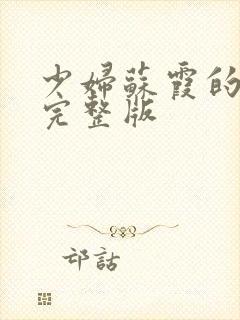 少婦蘇霞的
完整版
邙話